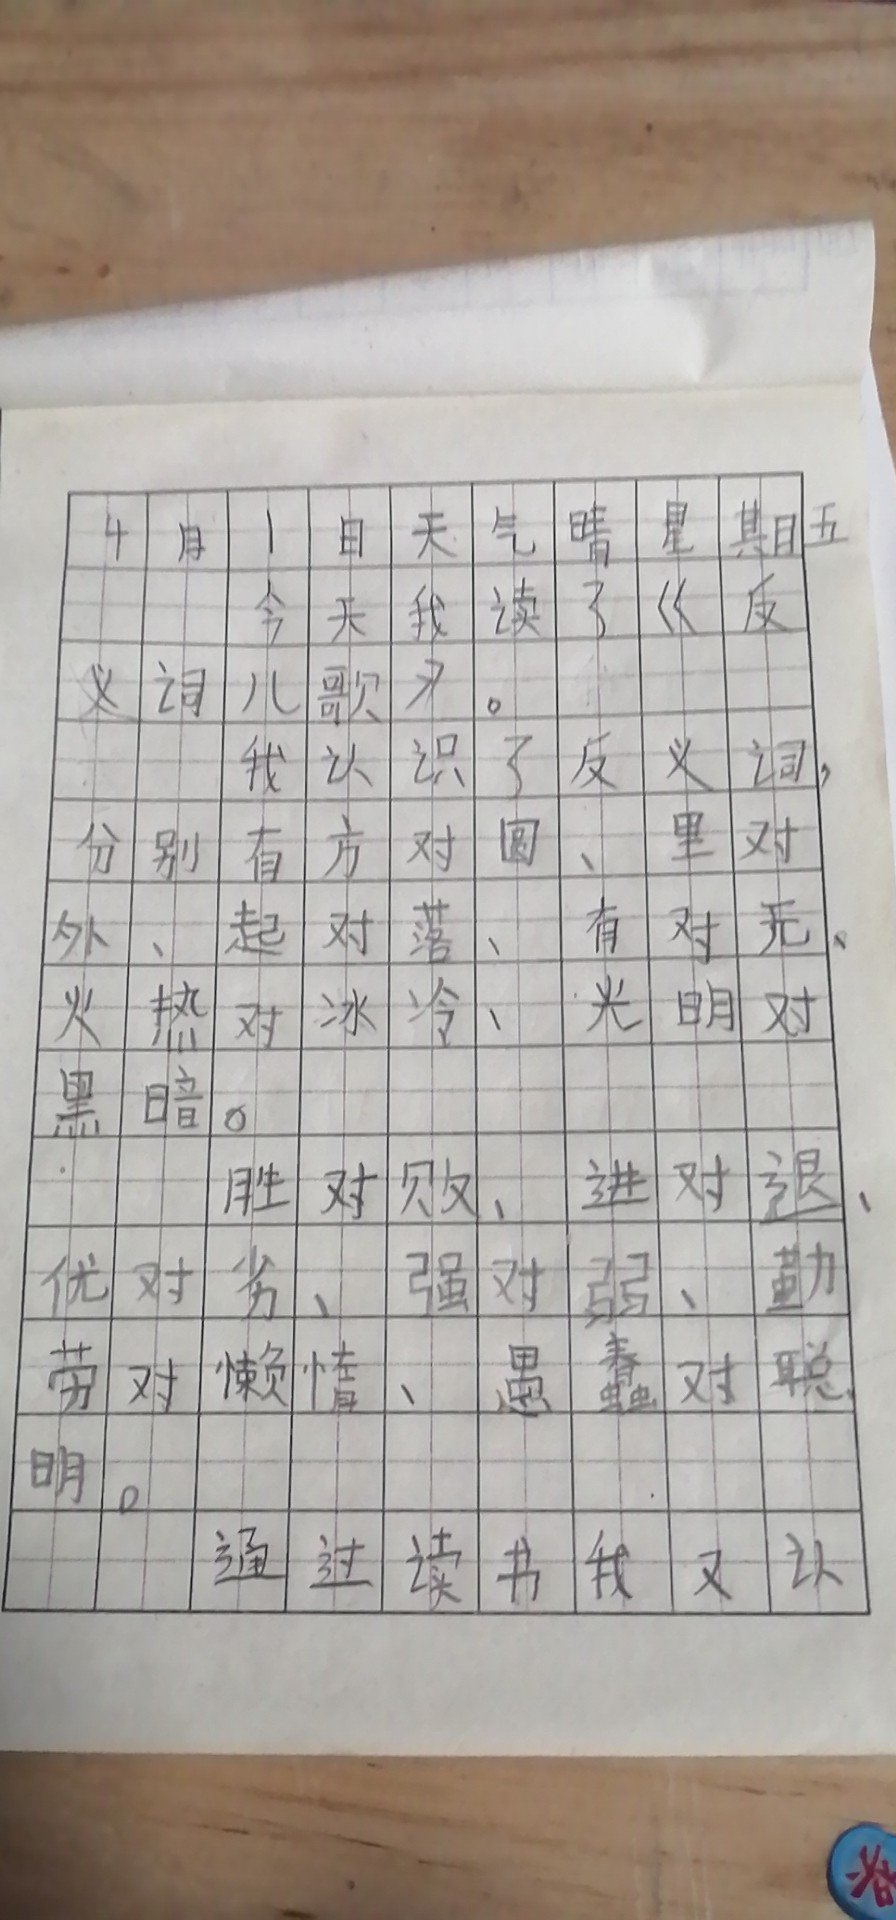 4月1日天气晴星期五
今天我读了《反
义词儿歌》。
我认识了反义词,
分别有方对圆、里对
外、起对落、有对无、
火热对冰冷、光明对
黑暗。
胜对败、进对退、
优对劣、强对弱、勤
劳对懒惰、愚蠢对聪
明。
通过读书我又认